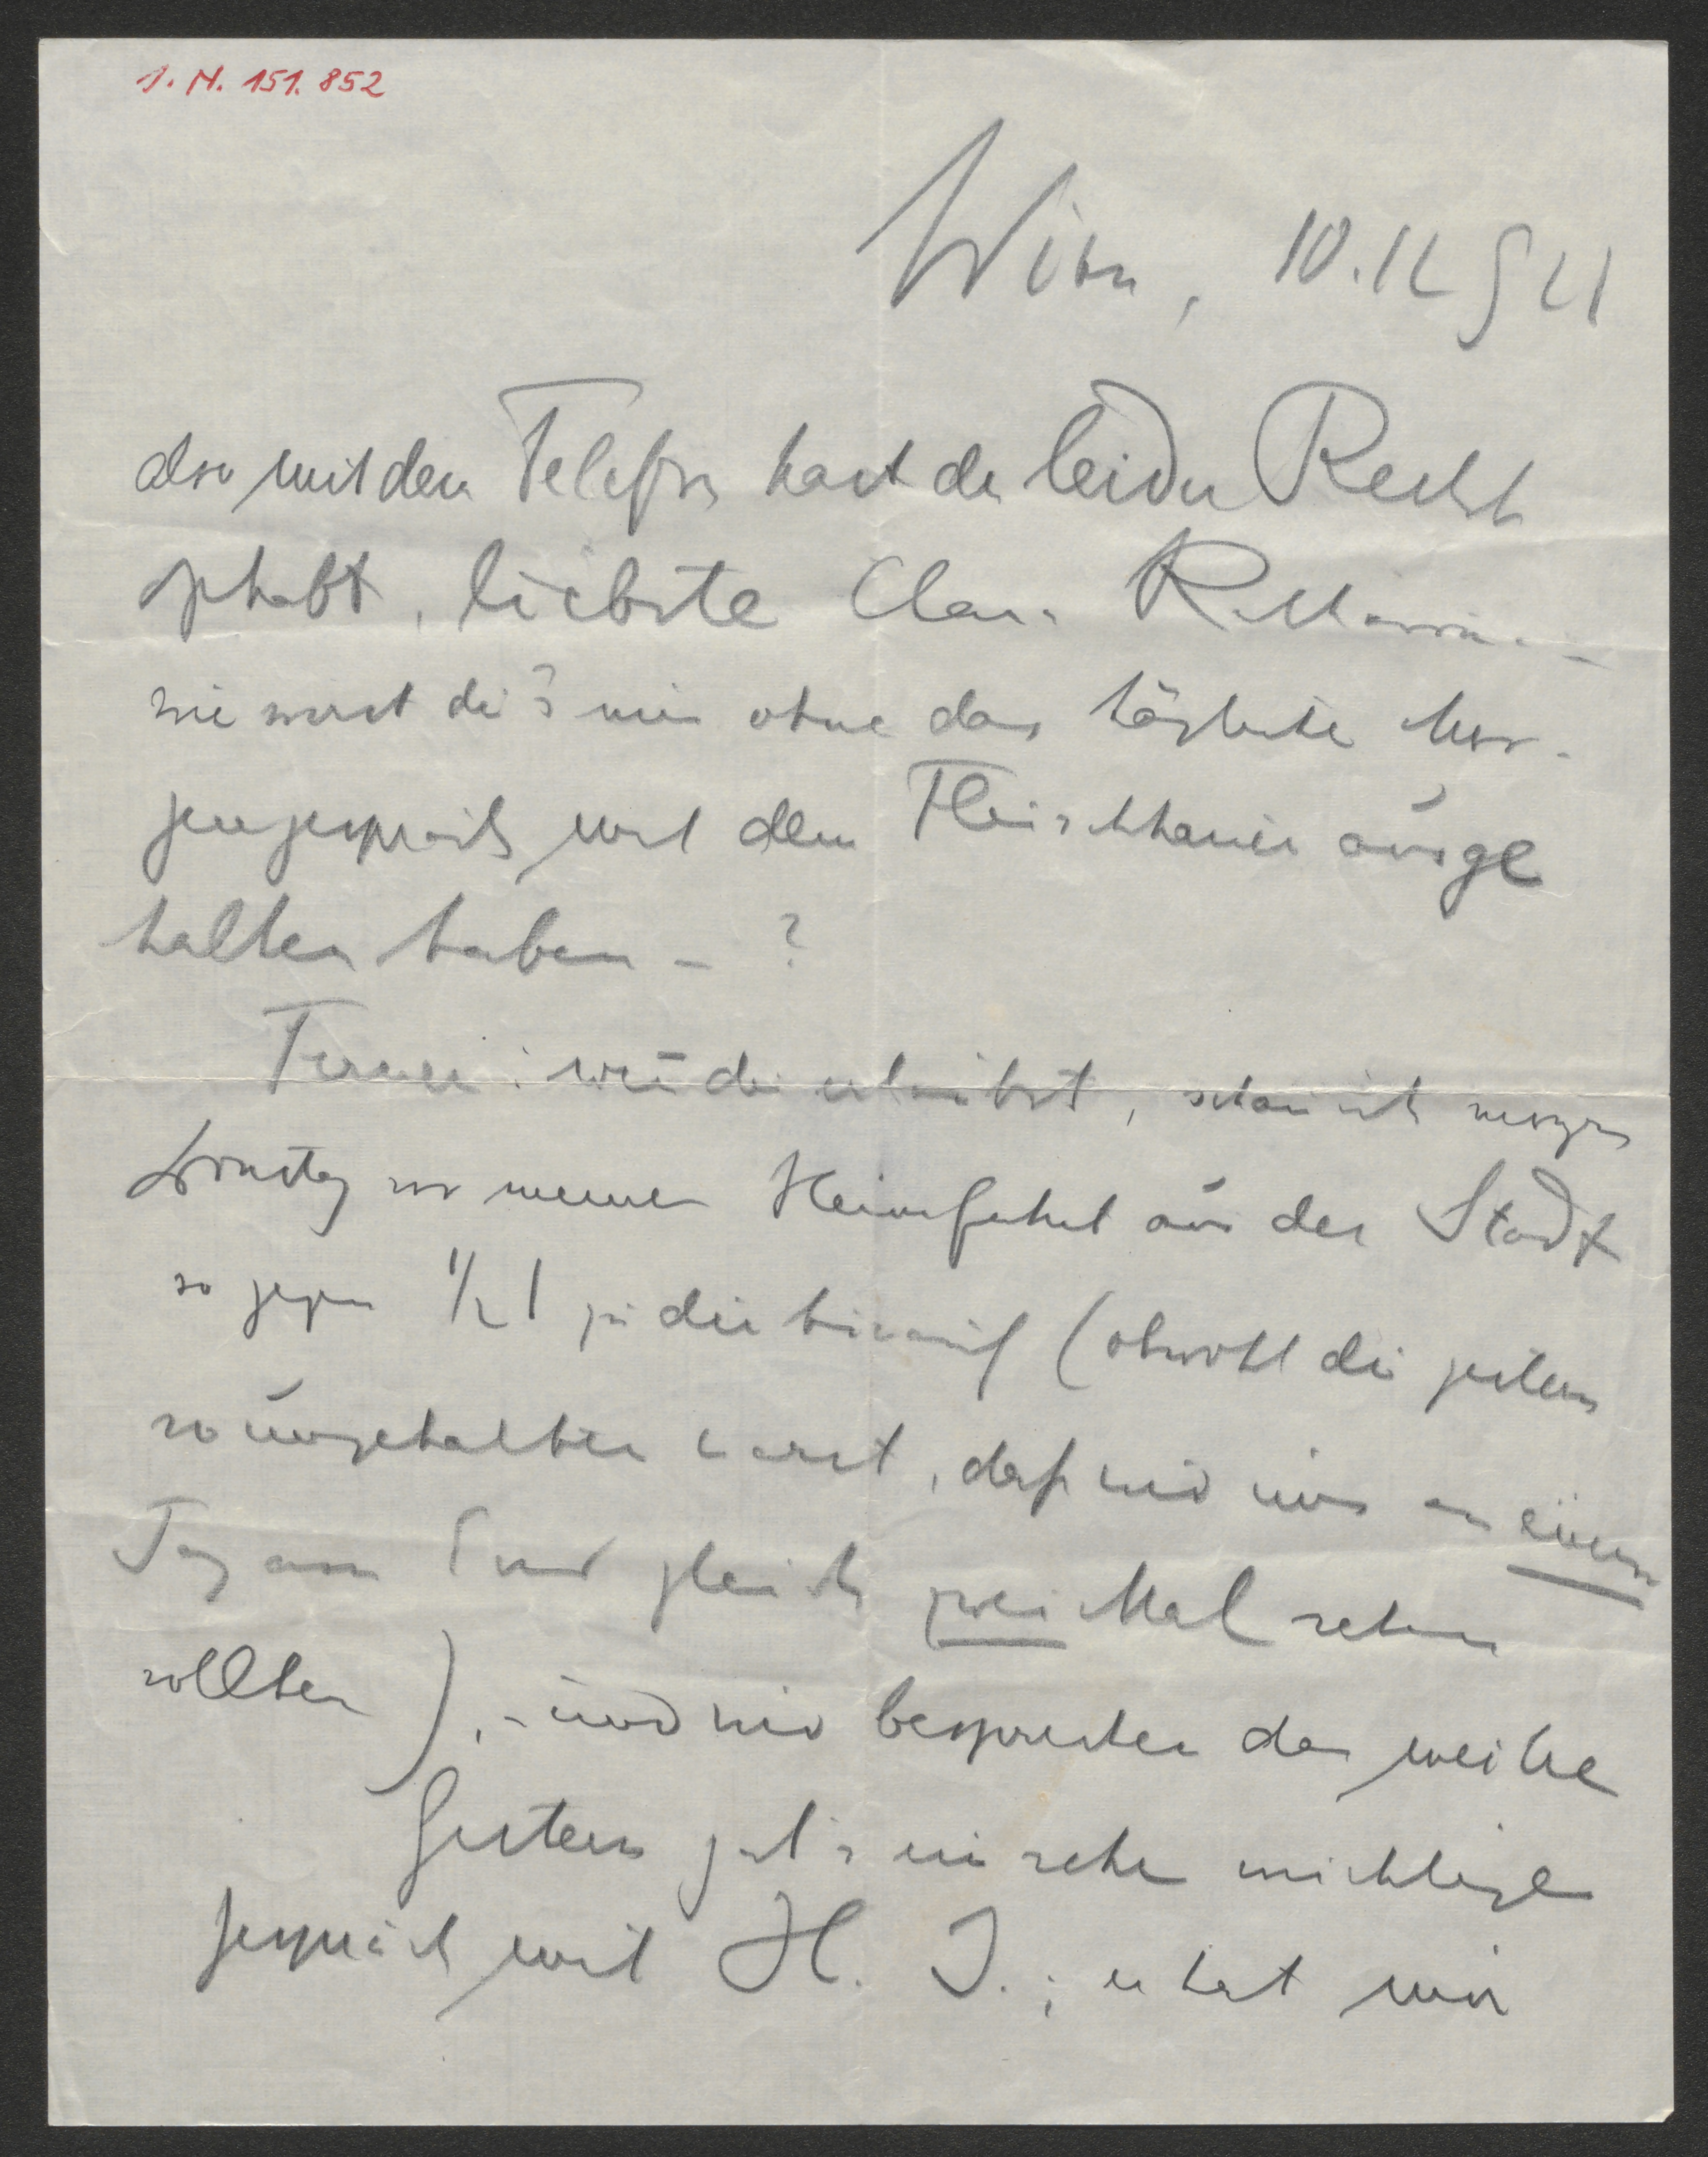 I. N. 151.852
Wien, 10.12 921
also mit dem Telefon hast du leider Recht
gehabt, liebste Clara Katharina –
wie wirst du's nur ohne das tägliche Mor-
gengespräch mit dem Fleischhauer ausge
halten haben – ?
Ferner: wenn du erlaubst, schau ich morgen
Sonntag vor meiner Heimfahrt aus der Stadt
so gegen ½ 1 zu dir hinauf (obwohl du gestern
so ungehalten warst, daß wir uns an einem
Tag am End gleich zwei Mal sehen
sollten), – und wir besprechen das weitere
Gestern gab's ein sehr wichtiges
Gespräch mit H. J.; er hat mir